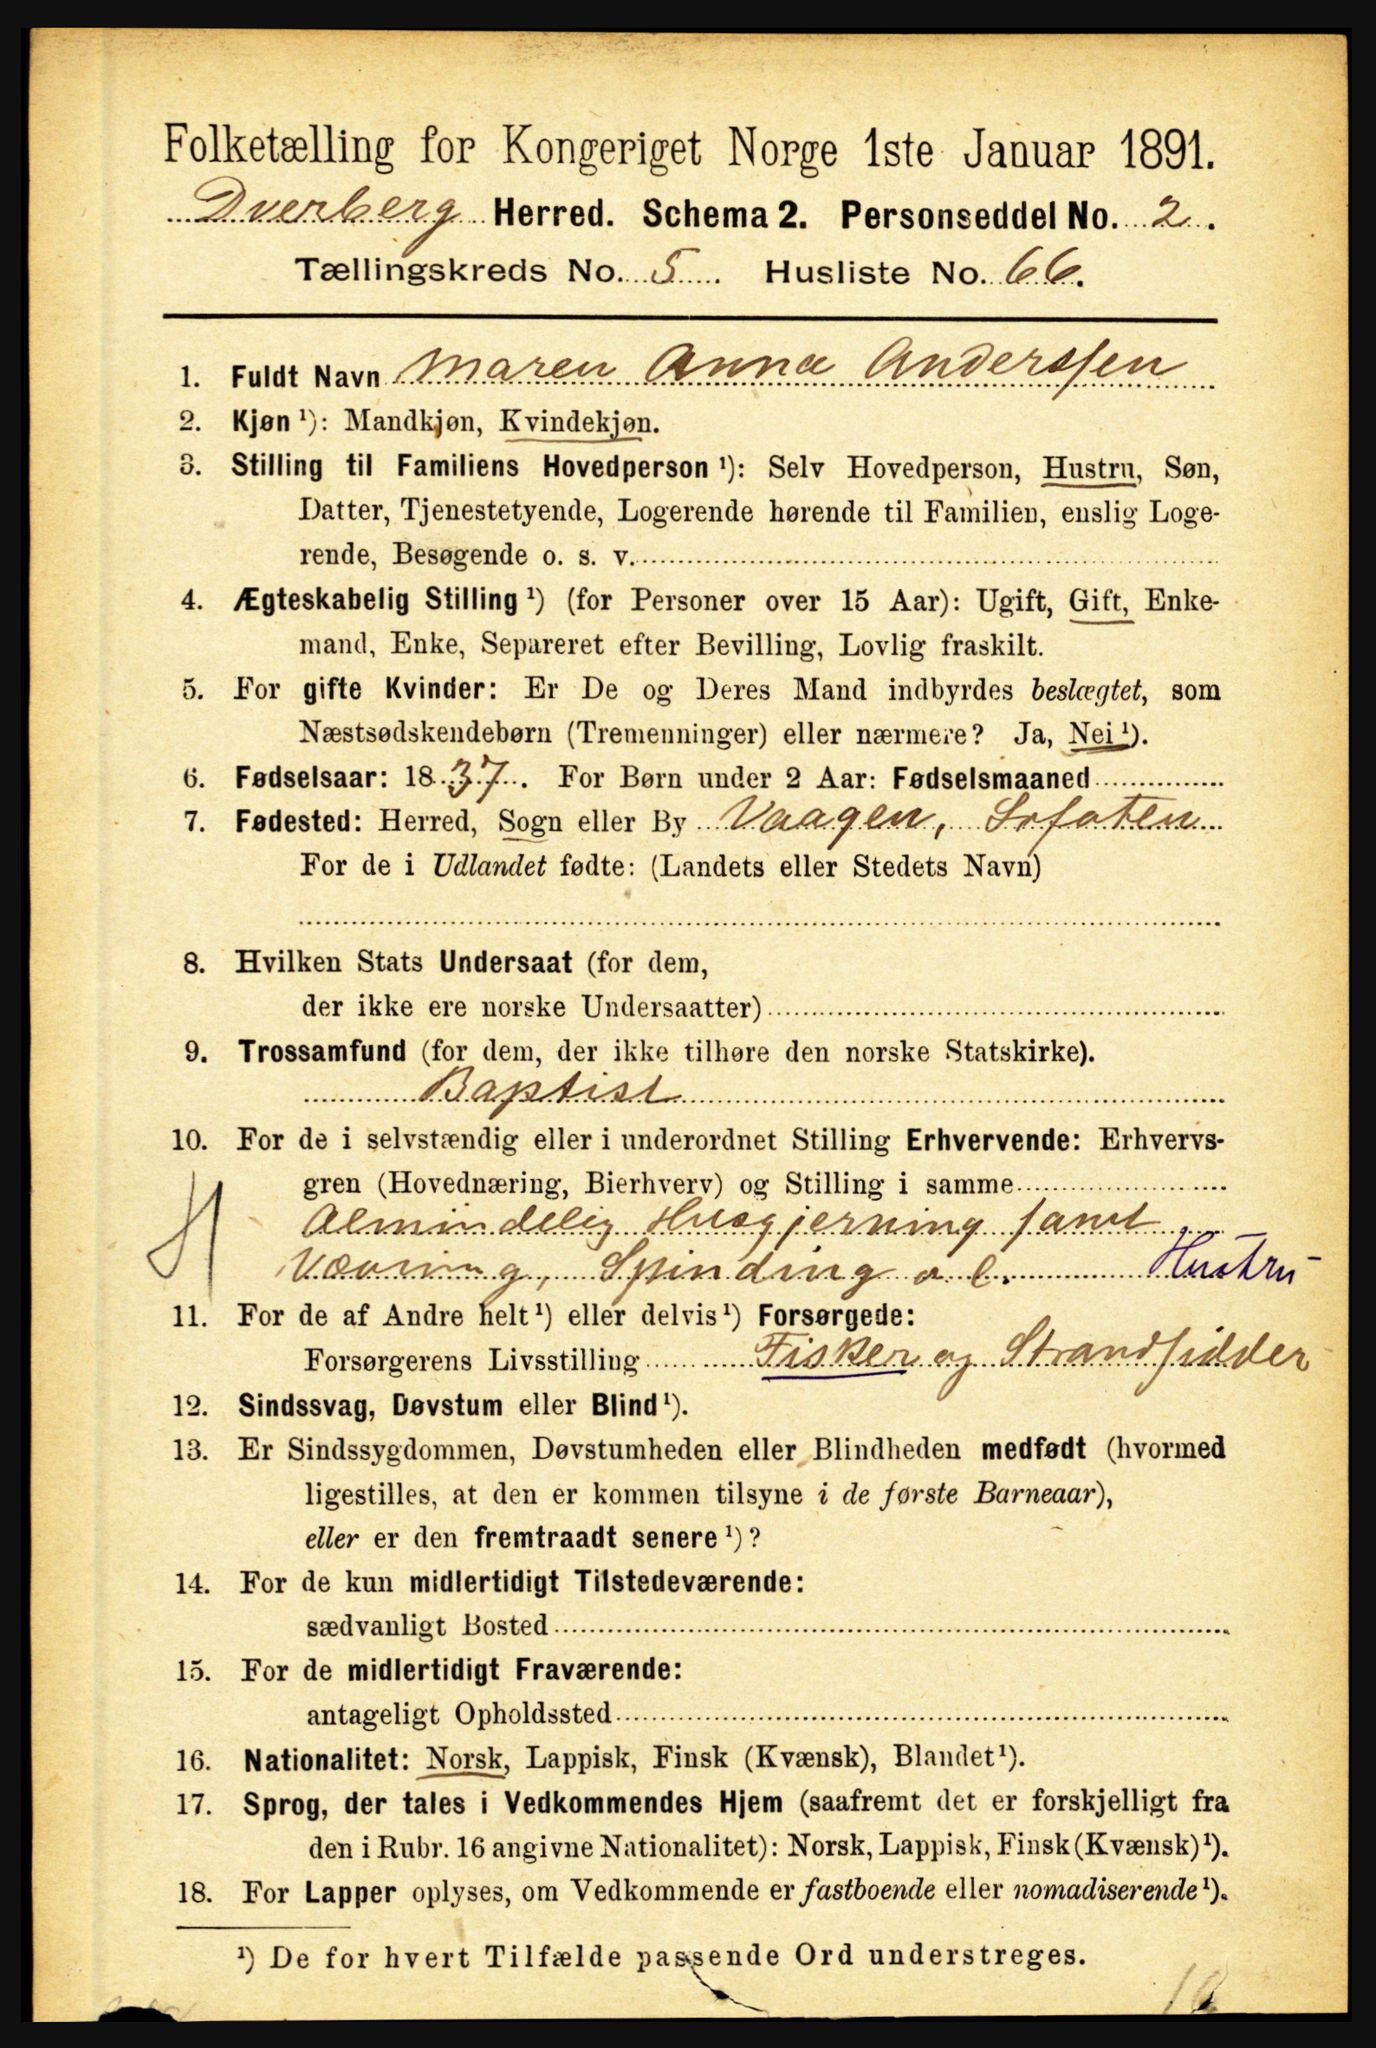 Folketælling for Kongeriget Norge 1ste Januar 1891.
Dverberg Herred. Schema 2. Personseddel No. 2.
Tællingskreds No. 5. Husliste No. 66.
1. Fuldt Navn Maren Anna Anderssen
2. Kjøn ¹): Mandkjøn, Kvindekjøn.
3. Stilling til Familiens Hovedperson ¹): Selv Hovedperson, Hustru, Søn,
Datter, Tjenestetyende, Logerende hørende til Familien, enslig Loge-
rende, Besøgende o. s. v.
4. Ægteskabelig Stilling ¹) (for Personer over 15 Aar): Ugift, Gift, Enke-
mand, Enke, Separeret efter Bevilling, Lovlig fraskilt.
5. For gifte Kvinder: Er De og Deres Mand indbyrdes beslægtet, som
Næstsødskendebørn (Tremenninger) eller nærmere? Ja, Nei ¹).
6. Fødselsaar: 1837. For Børn under 2 Aar: Fødselsmaaned
7. Fødested: Herred, Sogn eller By Vaagen, Lofoten
For de i Udlandet fødte: (Landets eller Stedets Navn)
8. Hvilken Stats Undersaat (for dem,
der ikke ere norske Undersaatter)
9. Trossamfund (for dem, der ikke tilhøre den norske Statskirke).
Baptist
10. For de i selvstændig eller i underordnet Stilling Erhvervende: Erhvervs-
gren (Hovednæring, Bierhverv) og Stilling i samme
Almindelig Husgjerning samt
Vævning, Spinding o. l. Hustru
11. For de af Andre helt ¹) eller delvis ¹) Forsørgede:
Forsørgerens Livsstilling Fisker og Strandsidder
12. Sindssvag, Døvstum eller Blind ¹).
13. Er Sindssygdommen, Døvstumheden eller Blindheden medfødt (hvormed
ligestilles, at den er kommen tilsyne i de første Barneaar),
eller er den fremtraadt senere ¹)?
14. For de kun midlertidigt Tilstedeværende:
sædvanligt Bosted
15. For de midlertidigt Fraværende:
antageligt Opholdssted
16. Nationalitet: Norsk, Lappisk, Finsk (Kvænsk), Blandet ¹).
17. Sprog, der tales i Vedkommendes Hjem (saafremt det er forskjelligt fra
den i Rubr. 16 angivne Nationalitet): Norsk, Lappisk, Finsk (Kvænsk) ¹).
18. For Lapper oplyses, om Vedkommende er fastboende eller nomadiserende ¹).
¹) De for hvert Tilfælde passende Ord understreges.